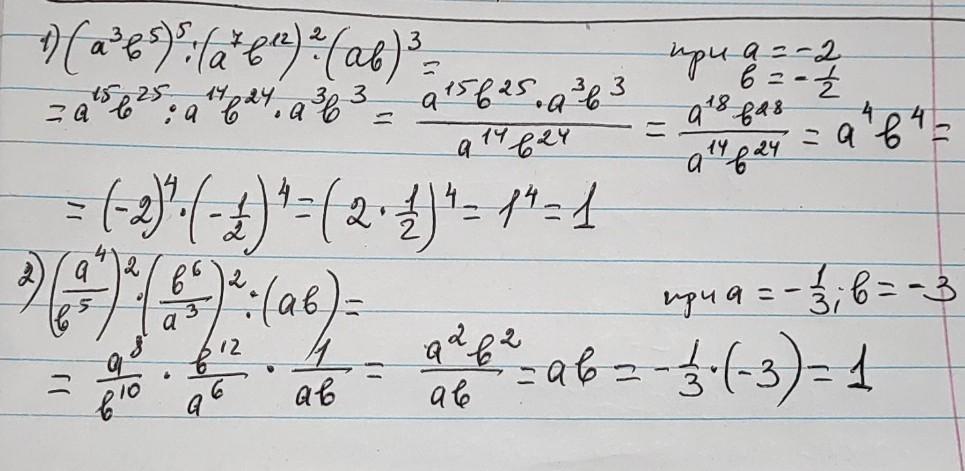 1) (a³b⁵)⁵ : (a⁷b¹²)² · (ab)³ = при a = -2
b = -1/2
= a¹⁵b²⁵ : a¹⁴b²⁴ · a³b³ = a¹⁵b²⁵ · a³b³ / a¹⁴b²⁴ = a¹⁸b²⁸ / a¹⁴b²⁴ = a⁴b⁴ =
= (-2)⁴ · (-1/2)⁴ = (2 · 1/2)⁴ = 1⁴ = 1
2) (a⁴/b⁵)² · (b⁶/a³)² : (ab) = при a = -1/3; b = -3
= a⁸/b¹⁰ · b¹²/a⁶ · 1/ab = a²b²/ab = ab = -1/3 · (-3) = 1